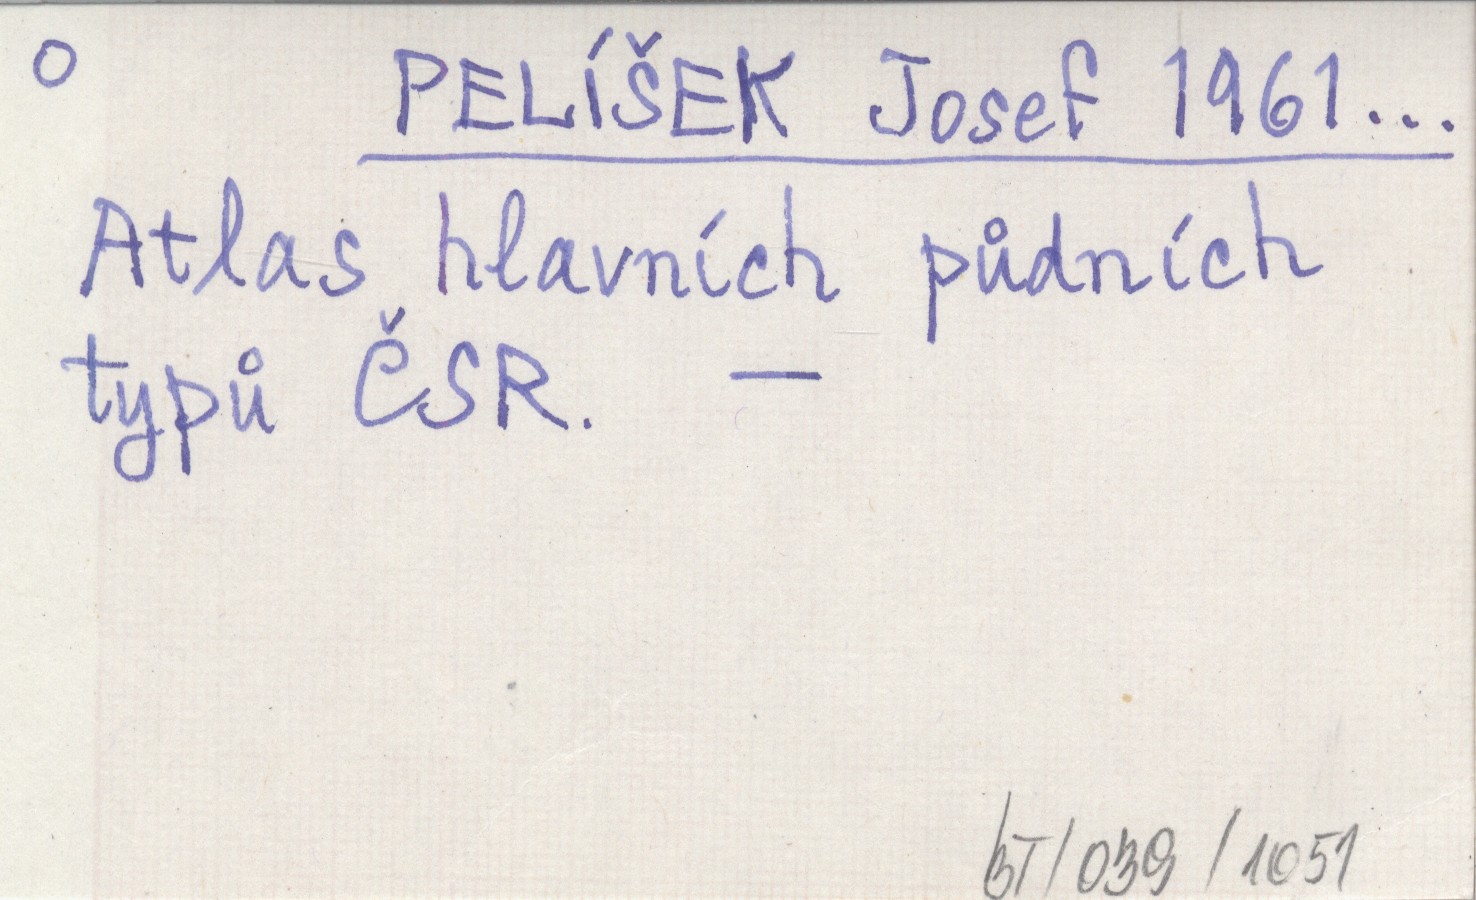 O PELÍŠEK Josef 1961...
Atlas hlavních půdních
typů ČSR. —
bT/039/1051